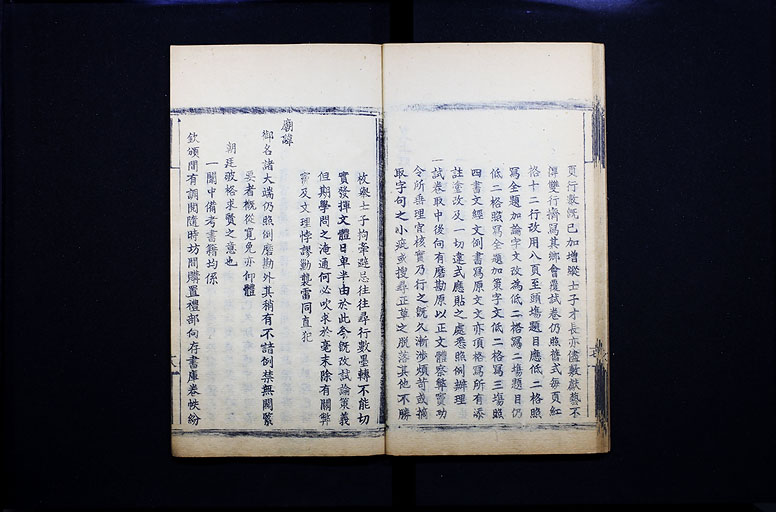 頁行數既已加增縱士子才長亦儘敷獻藝不
得雙行擠寫其鄉會覆試卷仍照舊式每頁紅
格十二行改用八頁至頭場題目應低二格照
寫全題加論字文改為低二格寫二場題目仍
低二格照寫全題加策字文低二格寫三場
四書文經文例書寫原文文亦頂格寫所有添
註塗改及一切違式應貼之處悉照例辦理
一試卷取中後向有磨勘原以正文體察弊竇功
令所垂理宜核實乃行之既久漸涉煩苛或摘
取字句之小疵或搜尋正草之脫落其他不勝
枚舉士子拘牽避忌往往尋行數墨轉不能切
實發揮文體日卑半由於此今既改試論策義
但期學問之淹通何必吹求於毫末除有關弊
竇及文理悖謬勦襲雷同直犯
廟諱
御名諸大端仍照例磨勘外其稍有不諳例禁無關緊
要者概從寬免亦仰體
朝廷破格求賢之意也
一闈中備考書籍均係
欽頒間有調閱隨時坊間購置禮部向存書庫卷帙紛